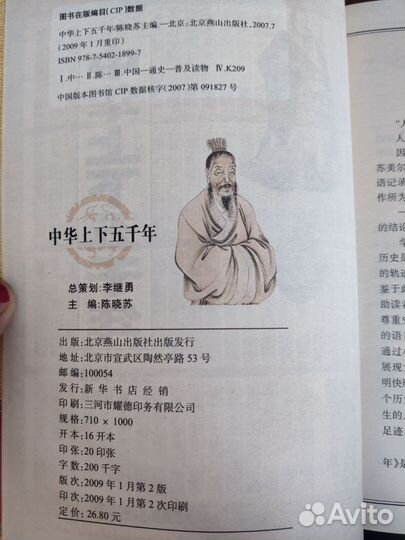 图书在版编目(CIP)数据
中华上下五千年/陈晓苏主编.—北京:北京燕山出版社,2007.7
(2009年1月重印)
ISBN 978-7-5402-1899-7
Ⅰ.中… Ⅱ.陈… Ⅲ.中国—通史—普及读物 Ⅳ.K209
中国版本图书馆CIP数据核字(2007)第091827号
中华上下五千年
总策划:李继勇
主 编:陈晓苏
出版:北京燕山出版社出版发行
地址:北京市宣武区陶然亭路53号
邮编:100054
发行:新华书店经销
印刷:三河市耀德印务有限公司
规格:710×1000
开本:16开本
印张:20印张
字数:200千字
版次:2009年1月第2版
印次:2009年1月第2次印刷
定价:26.80元
人
因
苏美尔
语记录
作所为
的结论
学
历史是
的轨迹
鉴于此
尊重史
的语
通过
展现
明快
个历史
足迹
年》是
Avito